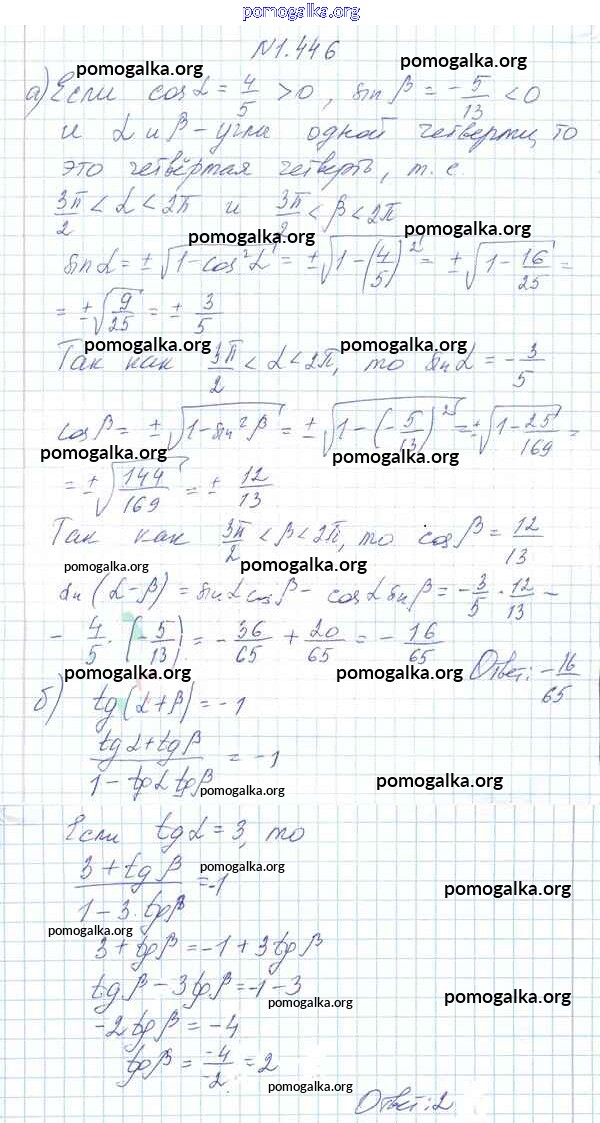 pomogalka.org
N1.446
pomogalka.org
pomogalka.org
а) Если cosα = 4/5 > 0, sinβ = -5/13 < 0
и α и β - углы одной четверти, то
это четвёртая четверть, т.е.
3π/2 < α < 2π и 3π/2 < β < 2π
pomogalka.org
pomogalka.org
sinα = ±√(1-cos²α) = ±√(1-(4/5)²) = ±√(1-16/25) =
= ±√(9/25) = ±3/5
pomogalka.org
pomogalka.org
Так как 3π/2 < α < 2π, то sinα = -3/5
cosβ = ±√(1-sin²β) = ±√(1-(-5/13)²) = ±√(1-25/169) =
pomogalka.org
pomogalka.org
= ±√(144/169) = ±12/13
Так как 3π/2 < β < 2π, то cosβ = 12/13
pomogalka.org
pomogalka.org
sin(α-β) = sinα cosβ - cosα sinβ = -3/5 · 12/13 -
- 4/5 · (-5/13) = -36/65 + 20/65 = -16/65
Ответ: -16/65
pomogalka.org
pomogalka.org
б) tg(α+β) = -1
(tgα+tgβ)/(1-tgα tgβ) = -1
pomogalka.org
pomogalka.org
Если tgα = 3, то
(3+tgβ)/(1-3·tgβ) = -1
pomogalka.org
pomogalka.org
pomogalka.org
3+tgβ = -1+3tgβ
tgβ-3tgβ = -1-3
pomogalka.org
pomogalka.org
-2tgβ = -4
tgβ = -4/-2 = 2
pomogalka.org
Ответ: 2